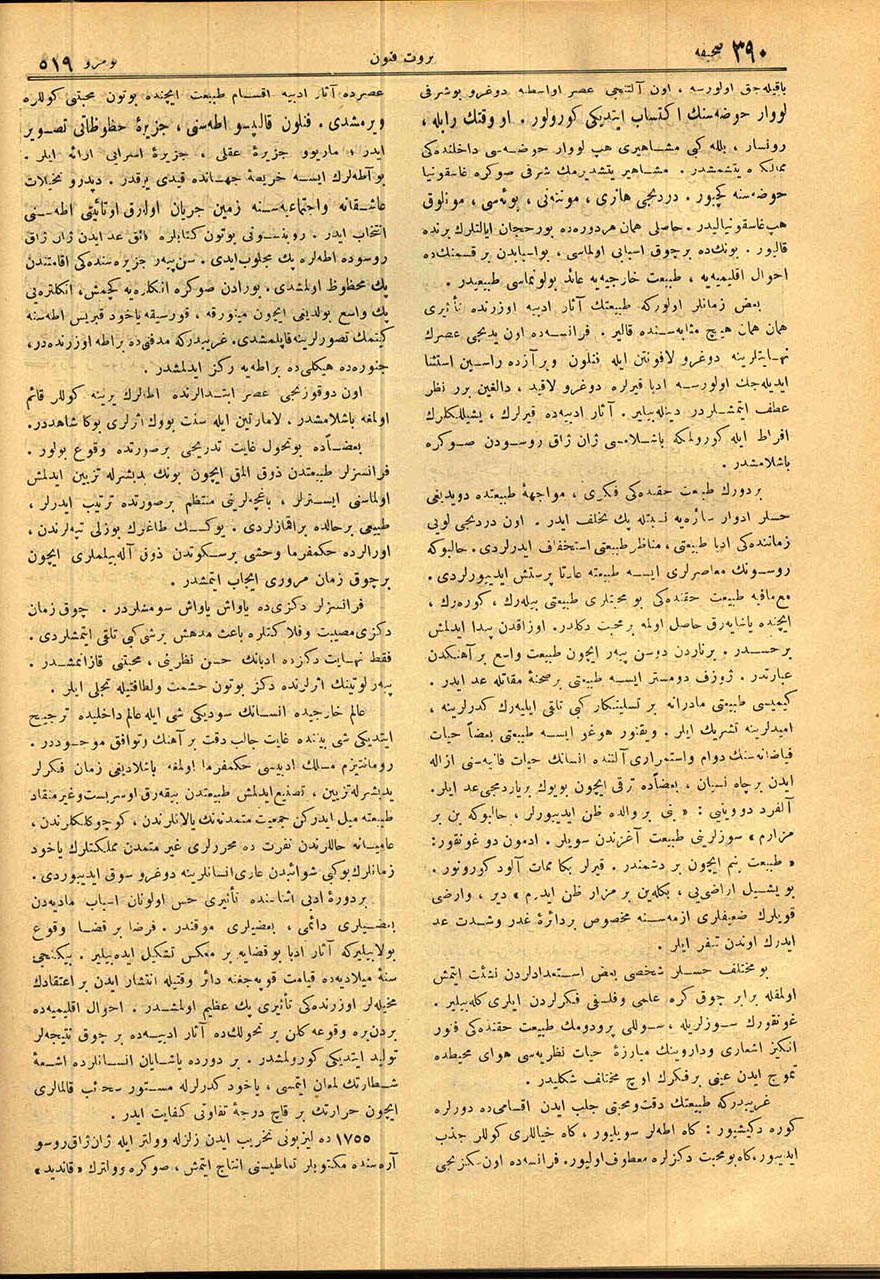 صحیفه ٣٩٠
ثروت فنون
نومرو ٥١٩
باقیله‌جق اولورسه ، اون آلتنجی عصر اواسطه دوغرو بوشرفی
لووار حوضه‌سنك اكتساب ایتدیكی كورولور . او وقتك رابله ،
رونسار ، بللە كبی مشاهیری هپ لووار حوضه‌سی داخلنده‌كی
ممالكده یتشمشدر . مشاهیر یتشدیرمك شرفی صوكره غاسقونیا
حوضه‌سنه كچیور . دردنجی هانری ، مونتەنی ، بوئه‌سی ، مونلوق
هپ غاسقونیالیدر. حاصلی همان هر دوره‌ده بو رجحان ایالتلرك برنده
قالیور . بونك‌ده برچوق اسبابی اولماسی ، بو اسبابدن بر قسمنك‌ده
احوال اقلیمیه‌یه ، طبیعت خارجیه‌یه عائد بولونماسی طبیعیدر .
بعض زمانلر اولوركه طبیعتك آثار ادبیه اوزرنده تأثیری
همان همان هیچ مثابه‌سنده قالیر . فرانسه‌ده اون یدنجی عصرك
نهایتلرینه دوغرو لافونتن ایله فنلون وبر آزده راسین استثنا
ایدیله‌جك اولورسه ادبا قیرلره دوغرو لاقید ، دالغین برر نظر
عطف ایتمشلردر دینله‌بیلیر . آثار ادبیه‌ده قیرلرك ، یشیللكلرك
افراط ایله كورولمكه باشلامسی ژان ژاق روسودن صوكره
باشلامشدر .
بر دورك طبیعت حقنده‌كی فكری ، مواجههٔ طبیعتده دویدیغی
حسلر ادوار سائره‌یه نسبتله پك تخلف ایدر . اون دردنجی لویی
زماننده‌كی ادبا طبیعتی ، مناظر طبیعتی استخفاف ایدرلردی . حالبوكه
روسونك معاصرلری ایسه طبیعته عادتا پرستش ایدییورلردی .
مع‌مافیه طبیعت حقنده‌كی بو محبتلری طبیعتی بیله‌رك ، كوره‌رك ،
ایچنده یاشایه‌رق حاصل اولمه بر محبت دكلدر. اوزاقدن پیدا ایدلمش
بر حسدر . برناردن دوسن پیه‌ر ایچون طبیعت واسع بر آهنكدن
عبارتدر . ژوزف دومستر ایسه طبیعتی بر صحنهٔ مقاتله عد ایدر .
كیمیسی طبیعتی مادرانه بر تسلیتكار كبی تلقی ایلیه‌رك كدرلرینه ،
امیدلرینه تشریك ایلر . ویقتور هوغو ایسه طبیعتی بعضاً حیات
فیاضانه‌سنك دوام واستمراری آلتنده انسانك حیات فانیه‌سنی ازاله
ایدن بر چاه نسیان ، بعضاًده ترقی ایچون بویوك بر یاردمجی عد ایلر.
آلفرد دووینیی : « بنی بر والده ظن ایدییورلر ، حالبوكه بن بر
مزارم » سوزلرینی طبیعت آغزندن سویلر . ادمون دو غونقور :
« طبیعت بنم ایچون بر دشمندر . قیرلر بكا ممات آلود كورونور .
بو یشیل اراضی‌یی ، بكله‌ین بر مزار ظن ایدرم » دیر ، وارضی
قویلرك ضعیفلری ازمه‌سنه مخصوص بر دائرهٔ غدر وشدت عد
ایدرك اوندن تنفر ایلر .
بو مختلف حسلر شخصی بعض استعدادلردن نشئت ایتمش
اولمغله برابر چوق كره علمی وفلسفی فكرلردن ایلری كله‌بیلیر .
غونقورك سوزلریله ، سوللی پرودومك طبیعت حقنده‌كی فتور
انكیز اشعاری وداروینك مبارزهٔ حیات نظریه‌سی هوای محیطده
تموج ایدن عینی بر فكرك اوچ مختلف شكلیدر .
غریبدركه طبیعتك دقت ومحبتی جلب ایدن اقسامی‌ده دورلره
كوره دكیشیور : كاه اطه‌لر سویلیور ، كاه خیاللری كوللر جذب
ایدییور ، كاه بو محبت دكزلره معطوف اولیور. فرانسه‌ده اون سكزنجی
عصرده آثار ادبیه اقسام طبیعت ایچنده بوتون محبتی كوللره
ویرمشدی . فنلون قالیپسو اطه‌سنی ، جزیرهٔ حظوظاتی تصویر
ایدر ، ماریوو جزیرهٔ عقلی ، جزیرهٔ اسرایی ارائه ایلر .
بو آطه‌لرك ایسه خریطهٔ جهانده قیدی یوقدر . دیدرو تخیلات
عاشقانه واجتماعیه‌سنه زمین جریان اولارق اوتائیتی اطه‌سنی
انتخاب ایدر . روبنسونی بوتون كتابلره فائق عد ایدن ژان ژاق
روسوده اطه‌لره پك مجلوب ایدی . سن‌پیه‌ر جزیره‌سنده‌كی اقامتندن
پك محظوظ اولمشدی . بورادن صوكره انكلتره‌یه كچمش، انكلتره‌یی
پك واسع بولدیغی ایچون مینورقه ، قورسیقه یاخود قبریس اطه‌سنه
كیتمك تصورلرینه قاپلمشدی. غریبدركه مدفنی‌ده بر اطه اوزرنده‌در ،
جنوره‌ده هیكلی‌ده بر اطه‌یه ركز ایدلمشدر .
اون دوقوزنجی عصر ابتدالرنده اطه‌لرك یرینه كوللر قائم
اولمغه باشلامشدر . لامارتین ایله سنت بووك اثرلری بوكا شاهددر.
بعضاًده بو تحول غایت تدریجی بر صورتده وقوع بولور .
فرانسزلر طبیعتدن ذوق المق ایچون بونك ید بشرله تزیین ایدلمش
اولماسنی ایسترلر ، باغچه‌لرینی منتظم بر صورتده ترتیب ایدرلر ،
طبیعی بر حالده براقمازلردی . یوكسك طاغلرك بوزلی تپه‌لرندن ،
اورالرده حكمفرما وحشی بر سكوتدن ذوق آله‌بیلملری ایچون
بر چوق زمان مروری ایجاب ایتمشدر .
فرانسزلر دكزی‌ده یاواش یاواش سومشلردر . چوق زمان
دكزی مصیبت وفلاكتلره باعث مدهش بر شی كبی تلقی ایتمشلردی .
فقط نهایت دكزده ادبانك حسن نظرینی ، محبتنی قازانمشدر .
پیه‌ر لوتینك اثرلرنده دكز بوتون حشمت ولطافتیله تجلی ایلر .
عالم خارجیده انسانك سودیكی شی ایله عالم داخلیده ترجیح
ایتدیكی شی بیننده غایت جالب دقت بر آهنك وتوافق موجوددر .
رومانتیزم مسلك ادبیسی حكمفرما اولمغه باشلادیغی زمان فكرلر
ید بشرله تزیین ، تصنیع ایدلمش طبیعتدن بیقه‌رق او سربست وغیر منقاد
طبیعته میل ایدركن جمعیت متمدنه‌نك یالانلرندن ، كوچوكلكلرندن ،
عامیانه حاللرندن نفرت ده محررلری غیر متمدن مملكتلرك یاخود
زمانلرك بو كبی شوائبدن عاری انسانلرینه دوغرو سوق ایدییوردی .
بر دورهٔ ادبی اثناسنده تأثیری حس اولونان اسباب مادیه‌دن
بعضیلری دائمی ، بعضیلری موقتدر . فرضا بر قضا وقوع
بولابیلیركه آثار ادبا بو قضایه بر معكس تشكیل ایده‌بیلیر . بیكنجی
سنهٔ میلادیه‌ده قیامت قوپه‌جغنه دائر وقتیله انتشار ایدن بر اعتقادك
مخیله‌لر اوزرنده‌كی تأثیری پك عظیم اولمشدر . احوال اقلیمیه‌ده
بردن بره وقوعه كلن بر تحولك‌ده آثار ادبیه‌ده بر چوق نتیجه‌لر
تولید ایتدیكی كورولمشدر . بر دورده یاشایان انسانلرده اشعهٔ
شطارتك لمعان ایتمسی ، یاخود كدرلرله مستور سحاب قالمالری
ایچون حرارتك بر قاچ درجهٔ تفاوتی كفایت ایدر .
١٧٥٥ ده لیزبونی تخریب ایدن زلزله وولتر ایله ژان ژاق روسو
آره‌سنده مكتوبلر تعاطیسنی انتاج ایتمش ، صوكره وولترك « قاندید »